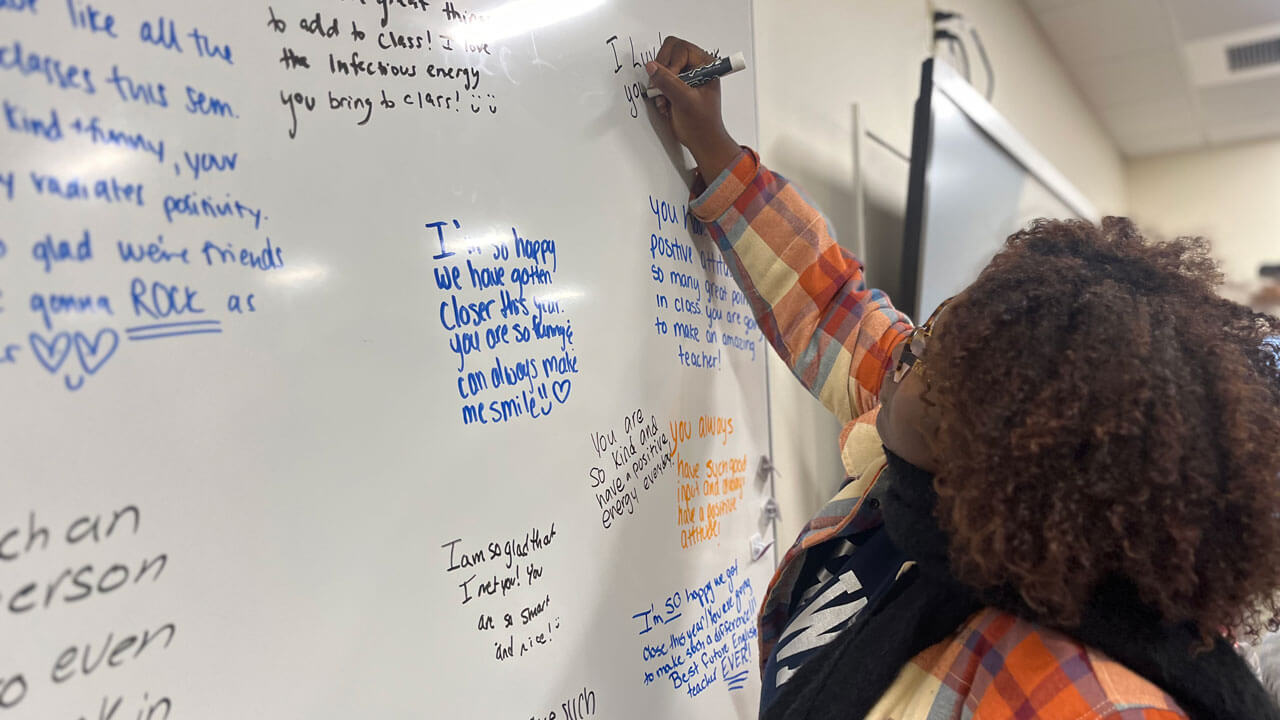 like all the
classes this sem.
kind + funny, your
radiates positivity.
glad we're friends
gonna ROCK as
great
to add to class! I love
the infectious energy
you bring to class!
I
I'm so happy
we have gotten
closer this year.
you are so funny &
can always make
me smile!!
you
positive
so many great
in class you are
to make an amazing
teacher!
You are
so kind and
have a positive
energy everyday!
you always
have such good
input and always
have a positive
attitude!
I am so glad that
I met you! You
are so smart
and nice!
I'm SO happy we got
close this year! You are going
to make such a difference!!!
Best Future English
teacher EVER!
an
even
in
W